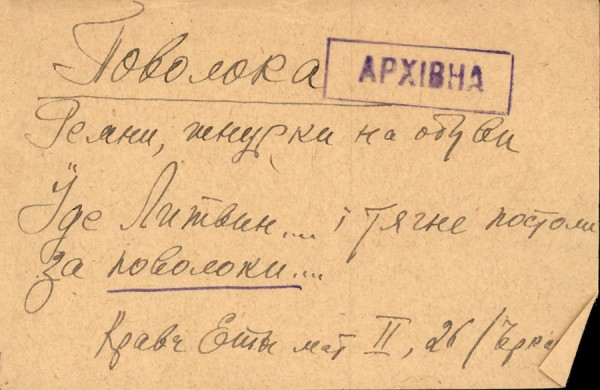 Поволока
АРХІВНА
Ремни, шнурки на обуви
Їде Литвин.... і тягне постоли
за поволоки....
Кравч Етн мат II, 26 /